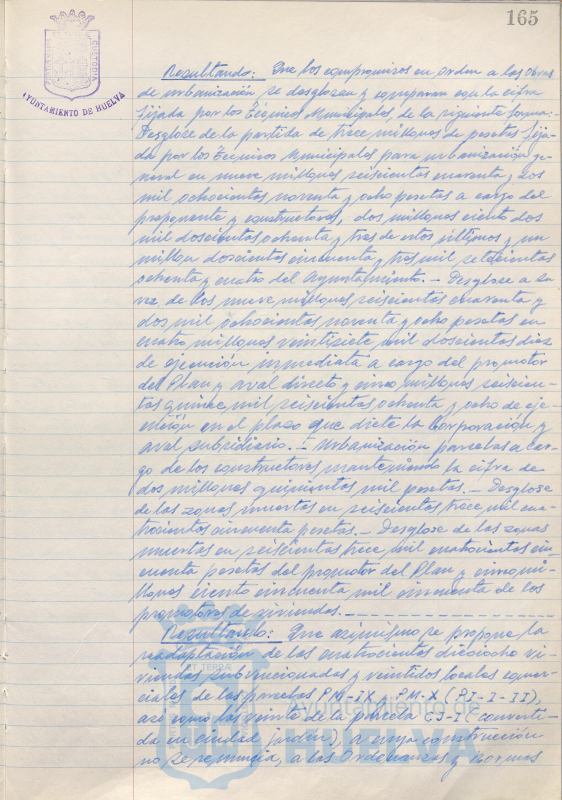 165
AYUNTAMIENTO DE HUELVA
Resultando: Que los compromisos en orden a las obras
de urbanización se desglosan y comparan con la cifra
fijada por los Técnicos Municipales, de la siguiente forma:-
Desglose de la partida de trece millones de pesetas fija-
da por los Técnicos Municipales para urbanización ge-
neral en nueve millones seiscientos cuarenta y dos
mil ochocientos noventa y ocho pesetas a cargo del
proponente y constructores, dos millones ciento dos
mil doscientos ochenta y tres de estos últimos y un
millón doscientos cincuenta y tres mil setecientos
ochenta y cuatro del Ayuntamiento.- Desglose a su
vez de los nueve millones seiscientos cuarenta y
dos mil ochocientos noventa y ocho pesetas en
cuatro millones veintisiete mil doscientos diez
de ejecución inmediata a cargo del promotor
del Plan y aval directo y cinco millones seiscien-
tos quince mil seiscientos ochenta y ocho de eje-
cución en el plazo que dicte la Corporación y
aval subsidiario.- Urbanización parcelas a car-
go de los constructores manteniendo la cifra de
dos millones quinientos mil pesetas.- Desglose
de las zonas muertas en seiscientos trece mil cua-
trocientos cincuenta pesetas.- Desglose de las zonas
muertas en seiscientos trece mil cuatrocientos cin-
cuenta pesetas del promotor del Plan y cinco mi-
llones ciento cincuenta mil cincuenta de los
promotores de viviendas.-
Resultando: Que asimismo se propone la
readaptación de las cuatrocientas dieciocho vi-
viendas subvencionadas y veintidos locales comer-
ciales de las parcelas PM-IX y PM-X (PJ-I-II),
así como las veinte de la parcela CJ-I (converti-
da en ciudad jardín), a cuya construcción
no se renuncia, a las Ordenanzas y Normas
Ayuntamiento de
HUELVA